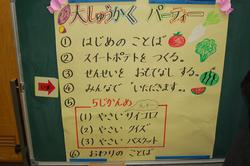 大しゅうかく パーティー
① はじめの ことば
② スイートポテトを つくる。
③ せんせいを おもてなし する。
④ みんなで いただきます。
⑤ 5じかんめ
(1) やさい サイコロ
(2) やさい クイズ
(3) やさい バスケット
⑥ おわりの ことば